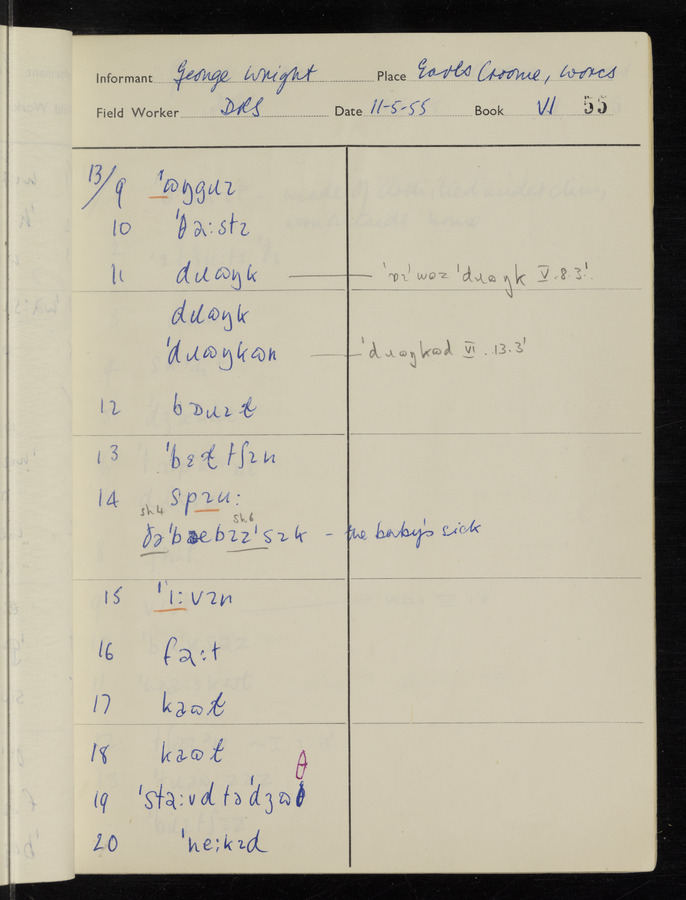 Informant George Wright Place Earls Croome, Worcs
Field Worker DRS Date 11-5-55 Book VI 55
13/9 'ɷŋgɹɪ
10 'θəːstɪ
11 dɹɷŋk — 'ɒɪ 'wəz 'dɹɷŋk V.8.3'.
dɹɷŋk
'dɹɷŋkən — 'dɹɷŋkəd VI.13.3'
12 bɒɹɪɫ
13 'bɛɫtʃɪn
14 spɪu:
sh4 sh6
ðə 'bæebɪz 'sɪk – the baby's sick
15 'iːvɪn
16 faːt
17 kaɷɫ
18 kaɷɫ
19 'staːvd tə 'dʒɷθ θ
20 'neːkɪd